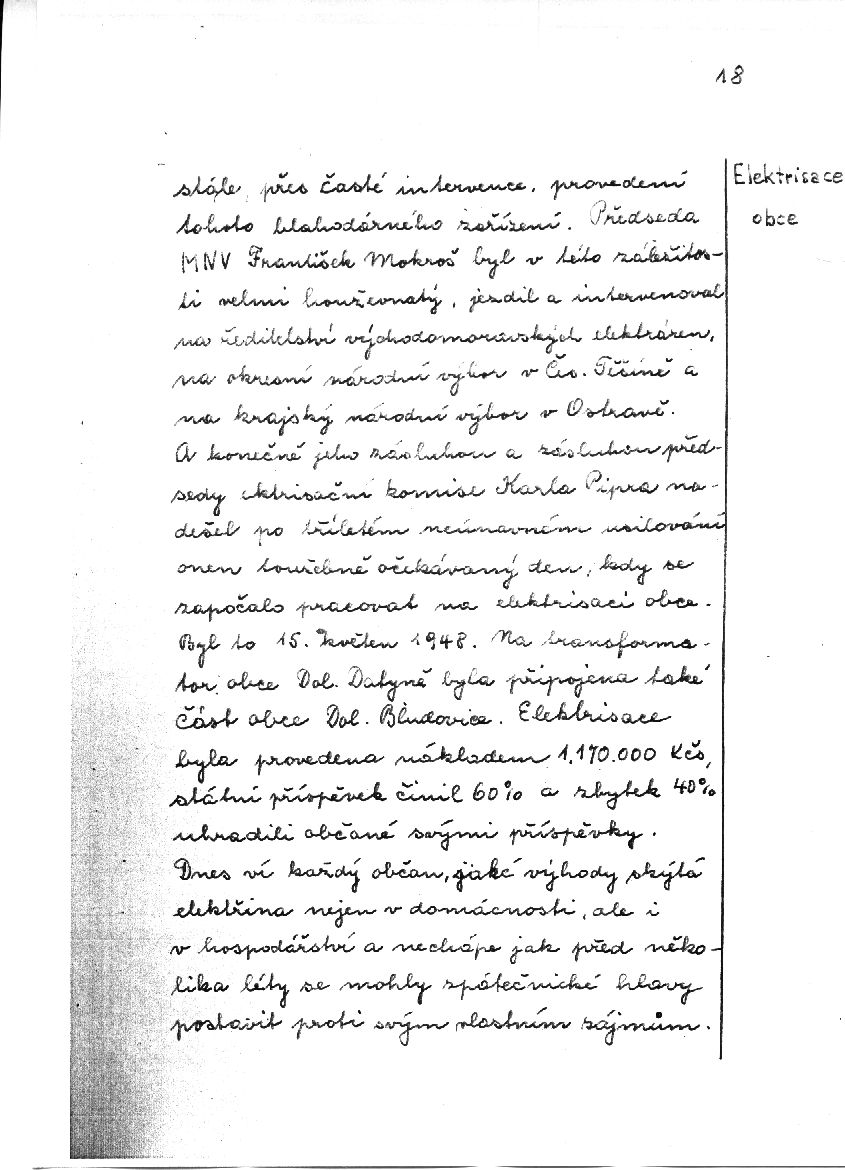 18
Elektrisace
obce
stále, přes časté intervence, provedení
tohoto blahodárného zařízení. Předseda
MNV František Mokroš byl v této záležitos-
ti velmi houževnatý, jezdil a intervenoval
na ředitelství východomoravských elektráren,
na okresní národní výbor v Čes. Těšíně a
na krajský národní výbor v Ostravě.
A konečně jeho zásluhou a zásluhou před-
sedy ektrisační komise Karla Pipra na-
dešel po tříletém neúnavném usilování
onen toužebně očekávaný den, kdy se
započalo pracovat na elektrisaci obce.
Byl to 15. květen 1948. Na transforma-
tor obce Dol. Datyně byla připojena také
část obce Dol. Bludovice. Elektrisace
byla provedena nákladem 1,170.000 Kčs,
státní příspěvek činil 60% a zbytek 40%
uhradili občané svými příspěvky.
Dnes ví každý občan, jaké výhody skýtá
elektřina nejen v domácnosti, ale i
v hospodářství a nechápe jak před něko-
lika léty se mohly zpátečnické hlavy
postavit proti svým vlastním zájmům.